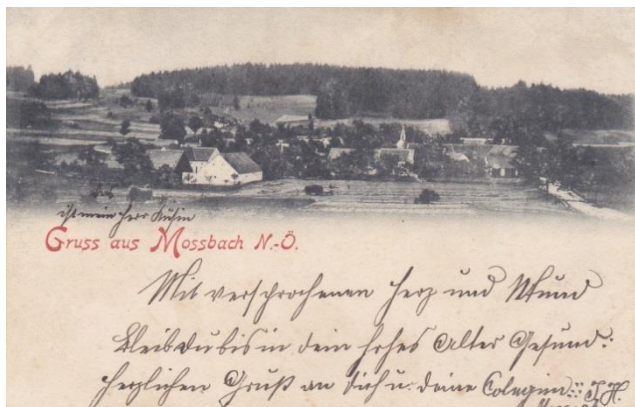 das
ist mein Herr Kuhin
Gruss aus Mossbach N.-Ö.
Mit versprochenen Herz und Mund
bleib du bis in dein hohes Alter Gesund.
herzlichen Gruß an dich u. deine Colegin: J.H.